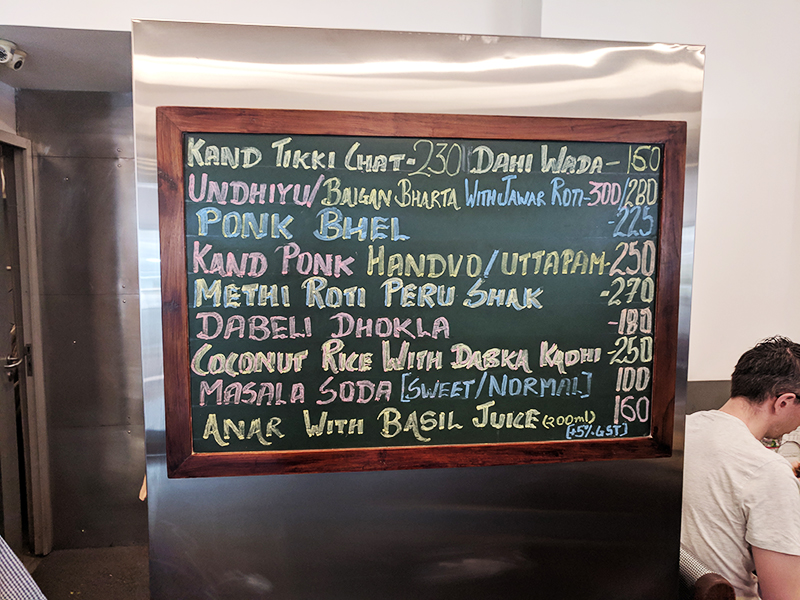 KAND TIKKI CHAT-230 DAHI WADA-150
UNDHIYU/BAIGAN BHARTA WITH JAWAR ROTI-300/280
PONK BHEL -225
KAND PONK HANDVO/UTTAPAM-250
METHI ROTI PERU SHAK -270
DABELI DHOKLA -180
COCONUT RICE WITH DABKA KADHI -250
MASALA SODA [SWEET/NORMAL] 100
ANAR WITH BASIL JUICE (200ml) 160
[+5% GST]